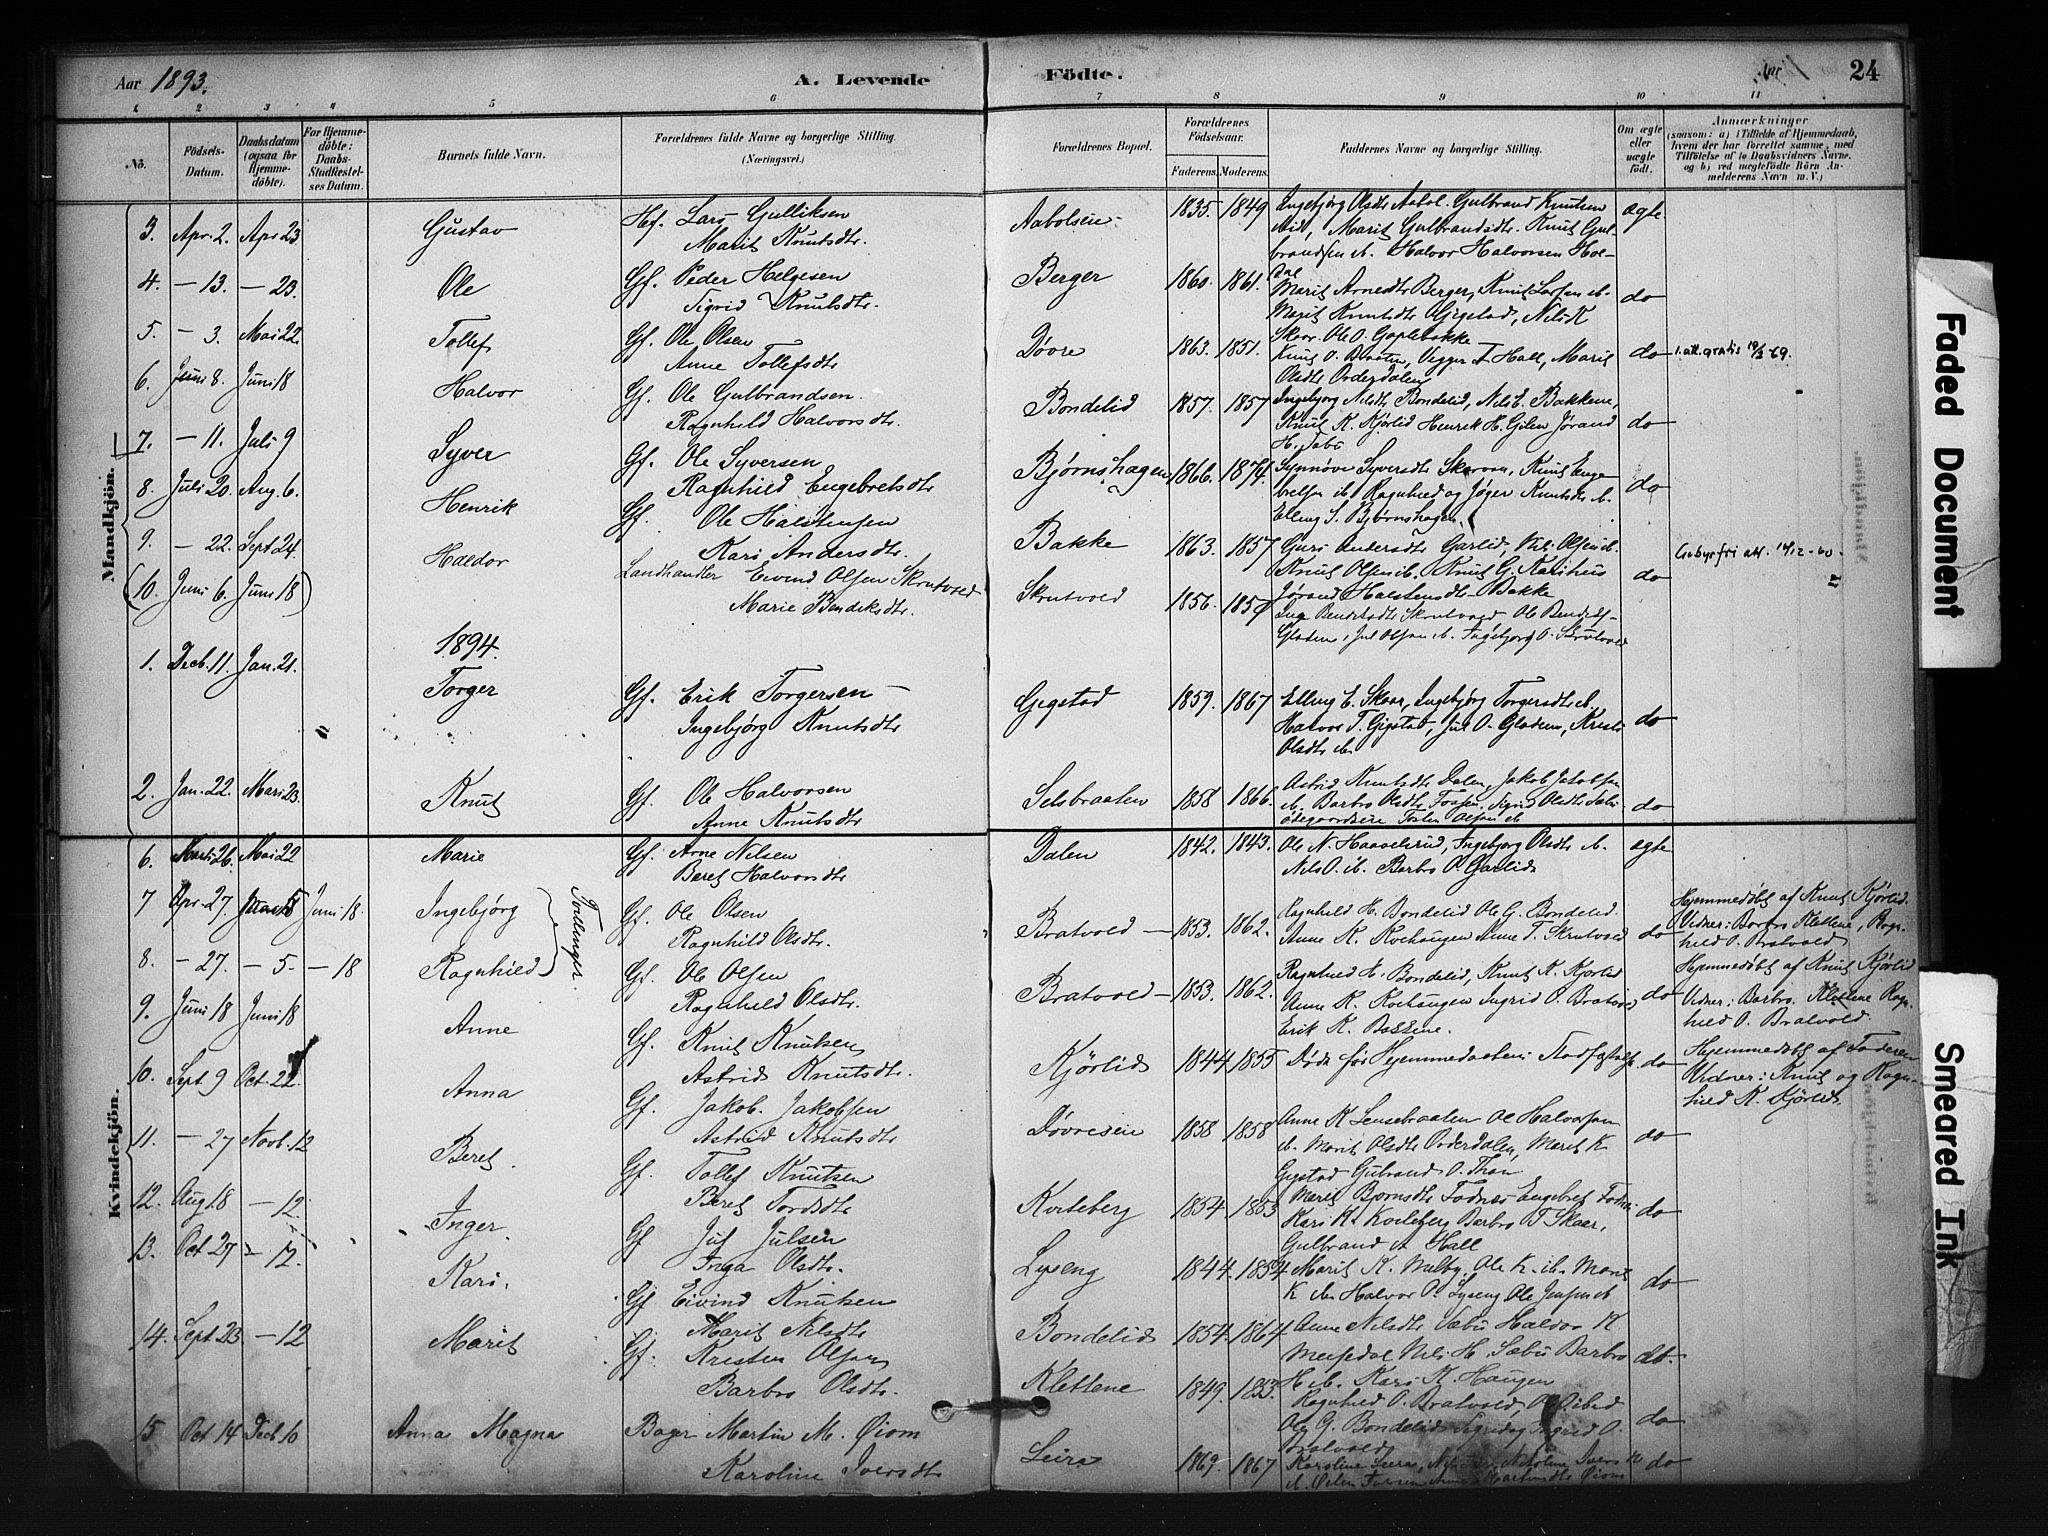 Aar 1893.
A. Levende
Födte.
Aar
24
1. 2 3 4 5 6 7 8 9 10 11
No.
Födsels-
Datum.
Daabsdatum
(ogsaa for
Hjemme-
döbte).
For Hjemme-
döbte:
Daabs-
Stadfæstel-
ses Datum.
Barnets fulde Navn.
Forældrenes fulde Navne og borgerlige Stilling.
(Næringsvei.)
Forældrenes Bopæl.
Forældrenes
Födselsaar.
Faderens. Moderens.
Faddernes Navne og borgerlige Stilling.
Om ægte
eller
uægte
födt.
Anmærkninger
(saasom: a) i Tilfælde af Hjemmedaab,
hvem der har forrettet samme, med
Tilföielse af to Daabsvidners Navne,
og b) ved uægtefödte Börn An-
melderens Navn m. V.)
Mandkjön.
3. Apr. 2. Apr. 23 Gustav Hf. Lars Gulliksen
Marit Knutsdtr.
Aabolseie 1835. 1849 Ingebjørg Olsdtr Aabol. Gulbrand Knutsen
ibid, Marit Gulbrandsdtr. Knut Gul-
brandsen ib. Halvor Halvorsen Hol-
dal
ægte
4. – 13. – 23. Ole Gf. Peder Helgesen
Sigrid Knutsdtr.
Berger 1860. 1861. Marit Arnesdtr Berger, Knut Larsen ib.
Marit Knutsdtr Gigstad, Nils K
Skaar. Ole O. Goplebakke
do
5. – 3. Mai 22. Tollef Gf. Ole Olsen
Anne Tollefsdtr
Døvre 1863. 1851. Knut O. Braaten, Vigger T Hall, Marit
Olsdtr Orderdalen
do 1. att. gratis 19/3 69.
6. Juni 8. Juni 18 Halvor Gf. Ole Gulbrandsen.
Ragnhild Halvorsdtr.
Bondelid 1857. 1857 Ingebjørg Nilsdtr Bondelid, Nils E. Bakkene,
Knut K. Kjørlid Henrik H. Gilen Jørand
do
7. – 11. Juli 9 Syver Gf. Ole Syversen
Ragnhild Engebretsdtr
Bjørnshagen 1866. 1874. Synnøve Syversdtr Skaran, Knut Enge-
bretsen ib. Ragnhild og Jøger Knutsdtr ib.
Elling S. Bjørnshagen.
do
8. Juli 20. Aug. 6. Henrik Gf. Ole Halstensen
Kari Andersdtr.
Bakke 1863. 1857 Guri Andersdtr Garlid, Nils Olsen ib.
Knut Olsen ib. Knut G. Karihus
Jørand Halstensdtr Bakke
do Gebyrfri att. 14/12-60.
9. – 22. Sept 24. Haldor Landhandler Eivind Olsen Skrutvold
Marie Bendiksdtr.
Skrutvold 1856. 1859
Gladem, Jul Olsen ib. Ingebjorg O. Skrutvold
(10. Juni 6. Juni 18)
1894.
1. Decb. 11. Jan. 21. Torger Gf. Erik Torgersen –
Ingebjørg Knutsdtr
Gigstad 1859. 1867 Elling E. Skaar, Ingebjørg Torgersdtr ib.
Halvor T. Gigstad, Jul O. Gladem, Kristi
Olsdtr ib.
do
2. Jan. 22. Mars 23. Knut Gf. Ole Halvorsen
Anne Knutsdtr
Selsbraaten 1858 1866. Astrid Knutsdtr Dalen, Jakob Jakobsen
ib. Barbro Olsdtr Fossen, Sigrid Olsdtr
do
Kvindekjön.
6. Marts 26. Mai 22 Marie Gf. Arne Nilsen
Beret Halvorsdtr
Dalen 1842. 1843. Ole N. Haavelsrud, Ingebjorg Olsdtr ib.
Nils O. ib. Barbro O. Garlid
ægte
7 Apr. 27. Mai 5 Juni 18. Ingebjørg
Tvillinger
Gf. Ole Olsen
Ragnhild Olsdtr.
Bratvold – 1853. 1862. Ragnhild H. Bondelid Ole G. Bondelid.
Anne K. Kvehaugen Anne T. Skrutvold
do Hjemmedøbt af Knut Kjørlid.
Vidner: Barbro Klettene, Ragn-
hild O. Bratvold
8. – 27. – 5. – 18 Ragnhild Gf. Ole Olsen
Ragnhild Olsdtr.
Bratvold – 1853. 1862. Ragnhild H. Bondelid, Knut K. Kjorlid
Anne K. Kvehaugen Ingrid O. Bratvold
Erik K. Bakkene.
do Hjemmedøbt af Knut Kjørlid
Vidner: Barbro. Klettene Ragn-
hild O. Bratvold.
9. Juni 18 Juni 18 Anne Gf. Knut Knutsen
Astrid Knutsdtr.
Kjørlid 1844 1855 Døde før Hjemmedaabens Stadfæstelse. do
Hjemmedøbt af Faderen
Vidner: Knut og Ragn-
hild K. Kjørlid.
10. Sept 9 Oct. 22 Anna Gf. Jakob. Jakobsen
Astrid Knutsdtr
Døvreseie 1858 1858 Anne K Sensebraaten Ole Halvorsen
ib. Marit Olsdtr Orderdalen, Marit K
Gigstad Gulbrand O. Thon
do
11. – 27 Novb. 12 Beret Gf. Tollef Knutsen
Beret Tordsdtr
Kvileberg 1854 1853 Marit Bjornsdtr Fodnes Engebret Fodnes
Kari K. Kvileberg Barbro T Skaar,
Gulbrand A Hall
do
12. Aug 18 – 12. Inger. Gf Jul Julsen
Inga Olsdtr.
Lyseng 1844. 1854 Marit K. Melby, Ole K. ib. Marit
K ib. Halvor O. Lyseng Ole Jensen ib
do
13. Oct 27 – 12. Kari. Gf Eivind Knutsen
Marit Nilsdtr
Bondelid 1854. 1864 Anne Nilsdtr Sæbu Haldor K
Meisdal Nils H. Sæbu Barbro
H. ib. Kari K. Haugen
do.
14. Sept 23 – 12 Marit Gf. Kristen Olsen
Barbro Olsdtr.
Klettene 1849. 1853. Ragnhild O. Bratvold, Ole ibid
Ole G. Bondelid Sigrid og Ingrid O.
Bratvold
do
15 Oct 14 Decb 10 Anna Magna Bager Martin M. Øiom
Karoline Iversdtr
Leira 1869. 1867 Karoline Leira,
do